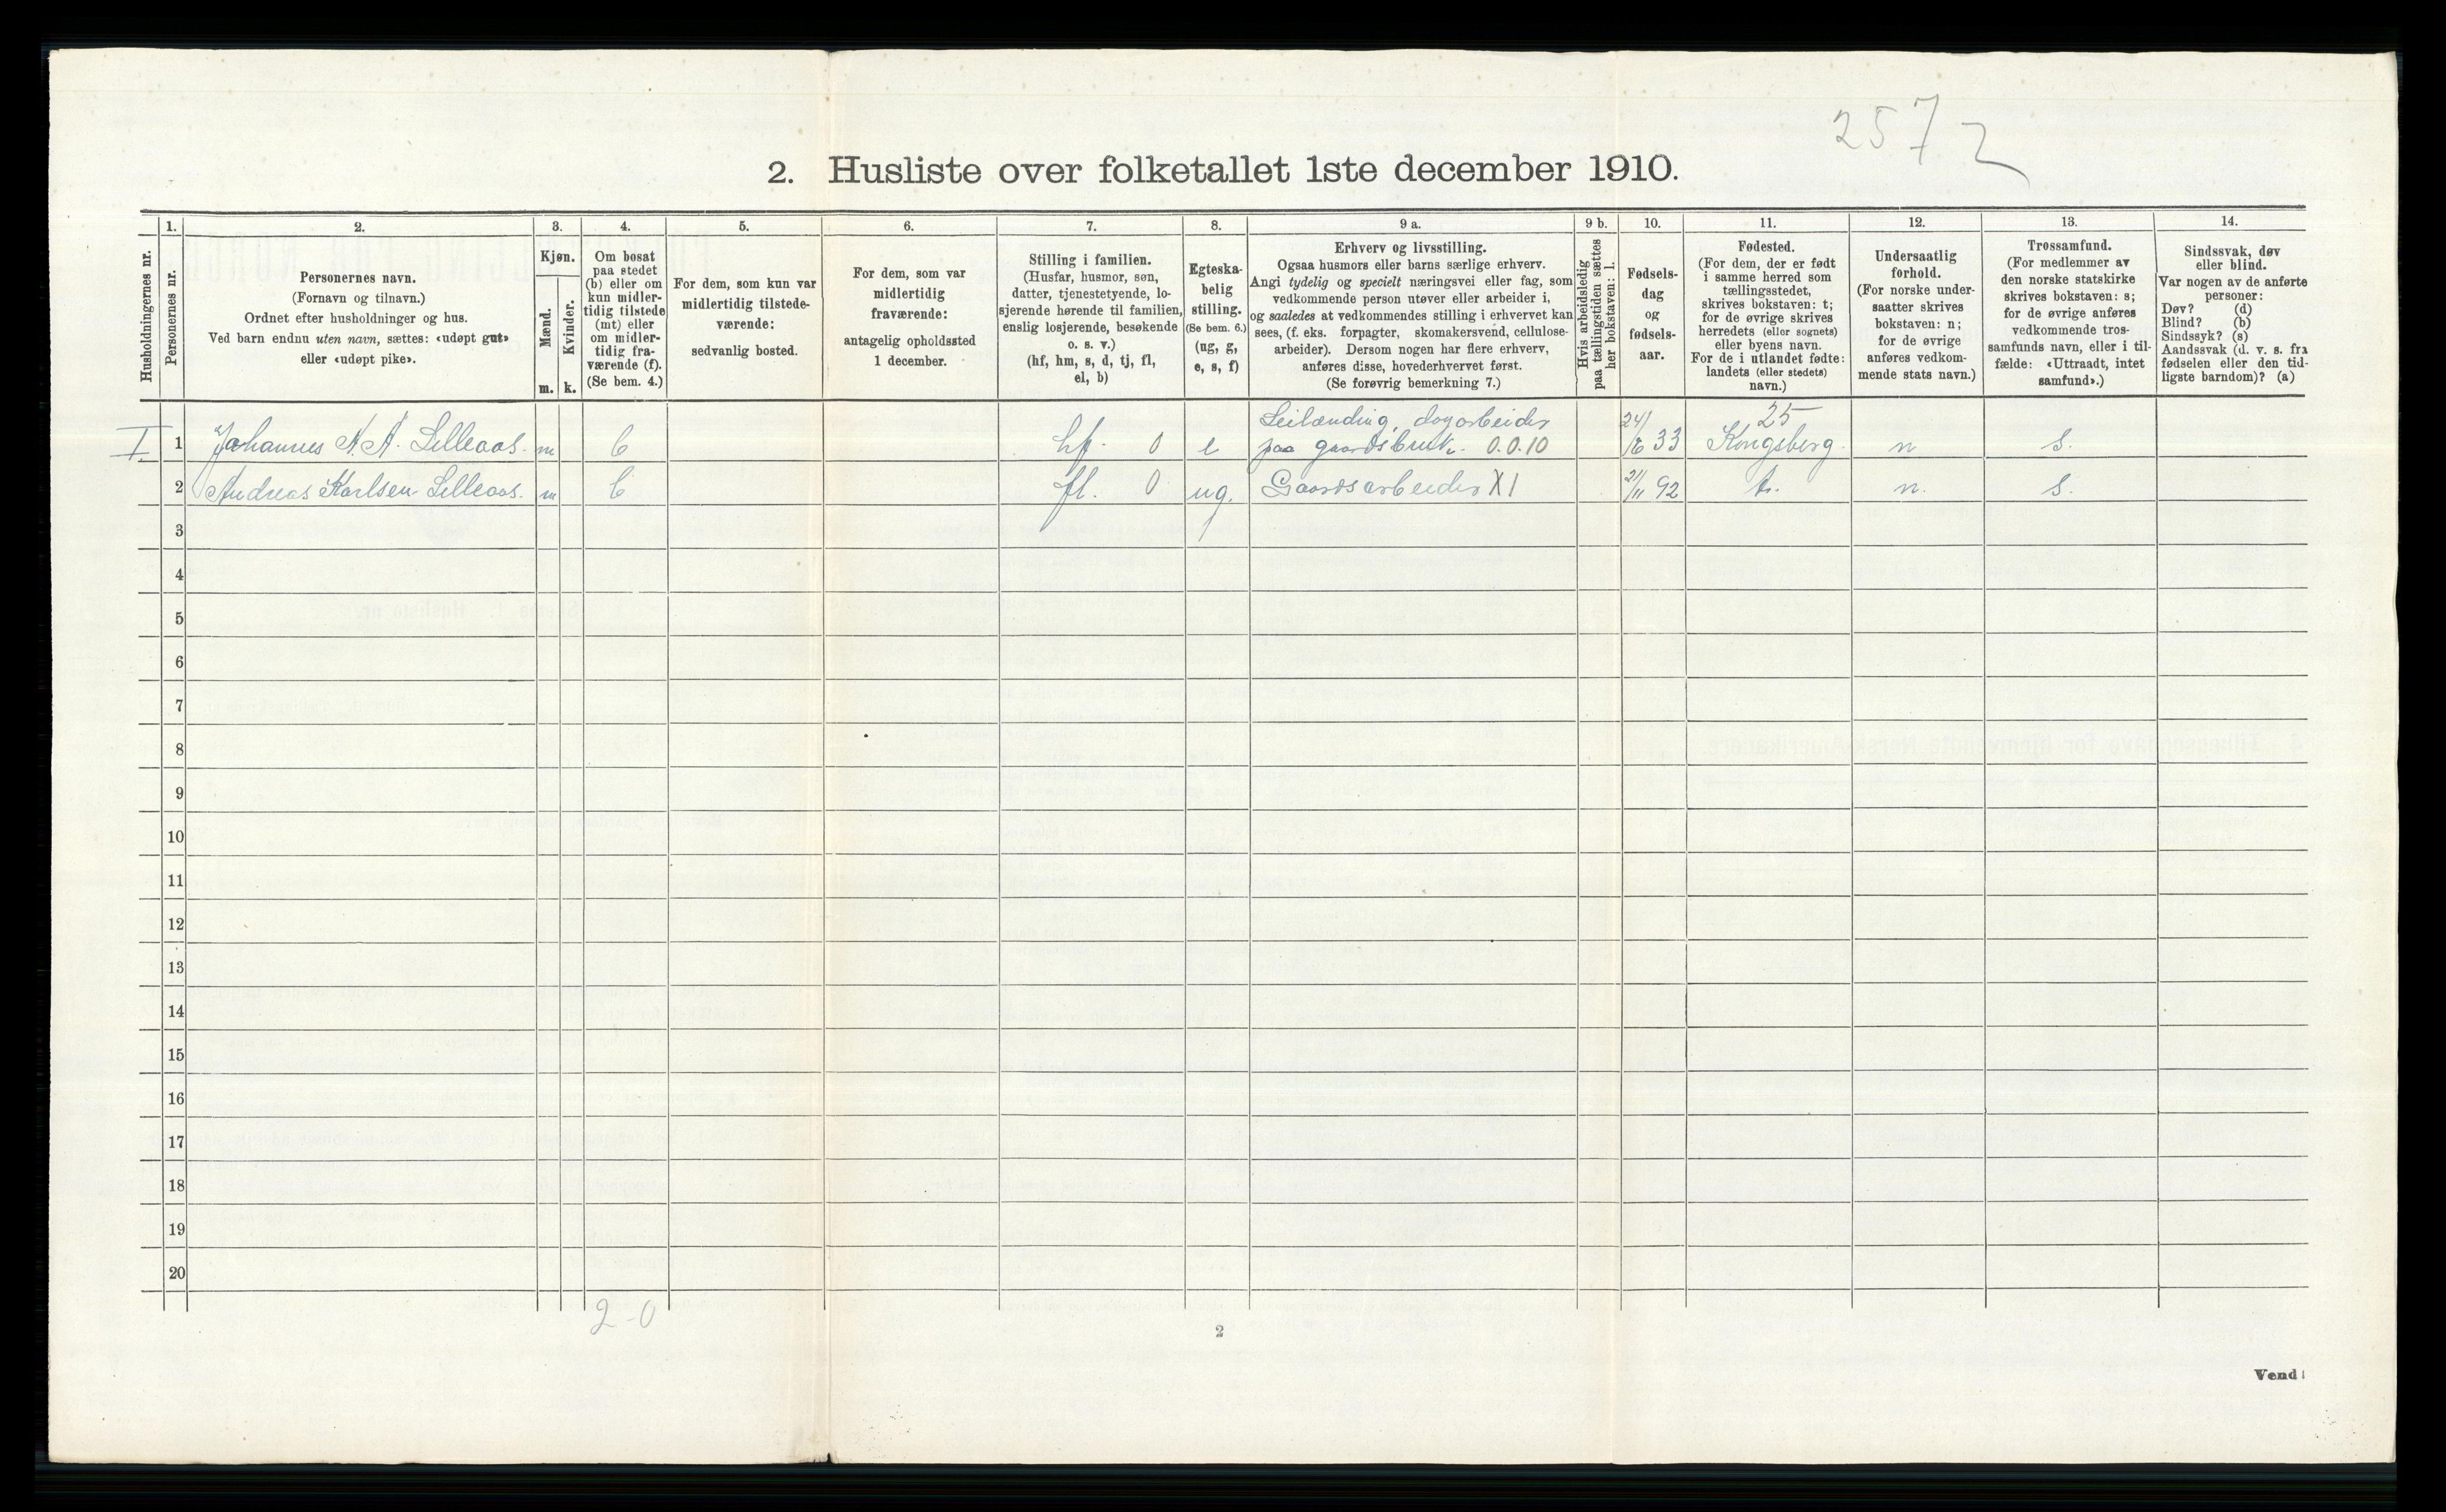 257 2
2. Husliste over folketallet 1ste december 1910.
Husholdningernes nr.
1.
Personernes nr.
2.
Personernes navn.
(Fornavn og tilnavn.)
Ordnet efter husholdninger og hus.
Ved barn endnu uten navn, sættes: «udøpt gut»
eller «udøpt pike».
3.
Kjøn.
Mænd.
Kvinder.
m. k.
4.
Om bosat
paa stedet
(b) eller om
kun midler-
tidig tilstede
(mt) eller
om midler-
tidig fra-
værende (f).
(Se bem. 4.)
5.
For dem, som kun var
midlertidig tilstede-
værende:
sedvanlig bosted.
6.
For dem, som var
midlertidig
fraværende:
antagelig opholdssted
1 december.
7.
Stilling i familien.
(Husfar, husmor, søn,
datter, tjenestetyende, lo-
sjerende hørende til familien,
enslig losjerende, besøkende
o. s. v.)
(hf, hm, s, d, tj, fl,
el, b)
8.
Egteska-
belig
stilling.
(Se bem. 6.)
(ug, g,
e, s, f)
9 a.
Erhverv og livsstilling.
Ogsaa husmors eller barns særlige erhverv.
Angi tydelig og specielt næringsvei eller fag, som
vedkommende person utøver eller arbeider i,
og saaledes at vedkommendes stilling i erhvervet kan
sees, (f. eks. forpagter, skomakersvend, cellulose-
arbeider). Dersom nogen har flere erhverv,
anføres disse, hovederhvervet først.
(Se forøvrig bemerkning 7.)
9 b.
Hvis arbeidsledig
paa tællingstiden sættes
her bokstaven: l.
10.
Fødsels-
dag
og
fødsels-
aar.
11.
Fødested.
(For dem, der er født
i samme herred som
tællingsstedet,
skrives bokstaven: t;
for de øvrige skrives
herredets (eller sognets)
eller byens navn.
For de i utlandet fødte:
landets (eller stedets)
navn.)
12.
Undersaatlig
forhold.
(For norske under-
saatter skrives
bokstaven: n;
for de øvrige
anføres vedkom-
mende stats navn.)
13.
Trossamfund.
(For medlemmer av
den norske statskirke
skrives bokstaven: s;
for de øvrige anføres
vedkommende tros-
samfunds navn, eller i til-
fælde: «Uttraadt, intet
samfund».)
14.
Sindssvak, døv
eller blind.
Var nogen av de anførte
personer:
Døv? (d)
Blind? (b)
Sindssyk? (s)
Aandssvak (d. v. s. fra
fødselen eller den tid-
ligste barndom)? (a)
Leilænding, dagarbeider 25
I. 1 Johannes A. A. Lilleaas. m b hf. 0 e paa gaardsbruk. 0.0.10 24/6 33 Kongsberg. n s.
2 Andreas Karlsen Lilleaas. m b fl. 0 ug. Gaardsarbeider X1 21/11 92 t. n. s.
3
4
5
6
7
8
9
10
11
12
13
14
15
16
17
18
19
20
2-0
2
Vend